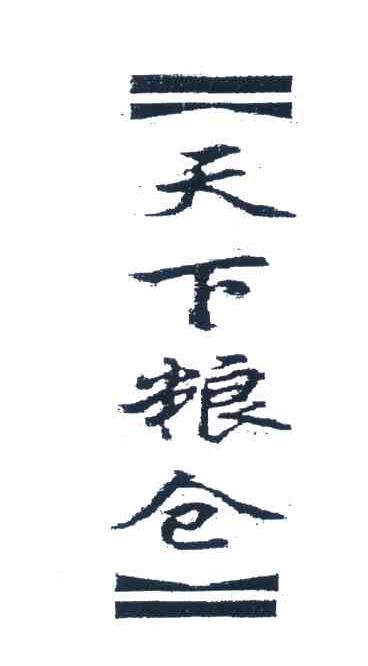 天下粮仓